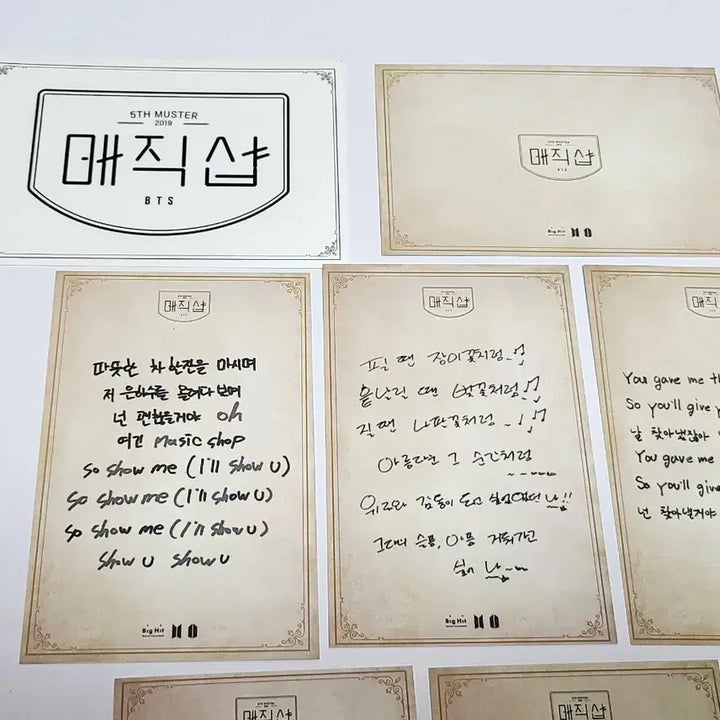 5TH MUSTER
2019
매직샵
BTS
5TH MUSTER
매직샵
BTS
Big Hit
매직샵
따뜻한 차 한잔을 마시며
저 은하수를 올려다 보며
넌 괜찮을거야 oh
여긴 Magic shop
So show me (I'll show u)
So show me (I'll show u)
So show me (I'll show u)
Show u show u
Big Hit
매직샵
필 땐 장미꽃처럼..
흩날릴 땐 벚꽃처럼..
질 땐 나팔꽃처럼
아름다운 그 순간처럼
위로와 감동이 되고 싶었었던 나!!
그대의 슬픔, 아픔 거둬가고
싶어 나~
Big Hit
매직
You gave me
So you'll give
날 찾아냈잖아
You gave me
So you'll give
넌 찾아낼거야
5TH MUSTER
매직샵
5TH MUSTER
매직샵